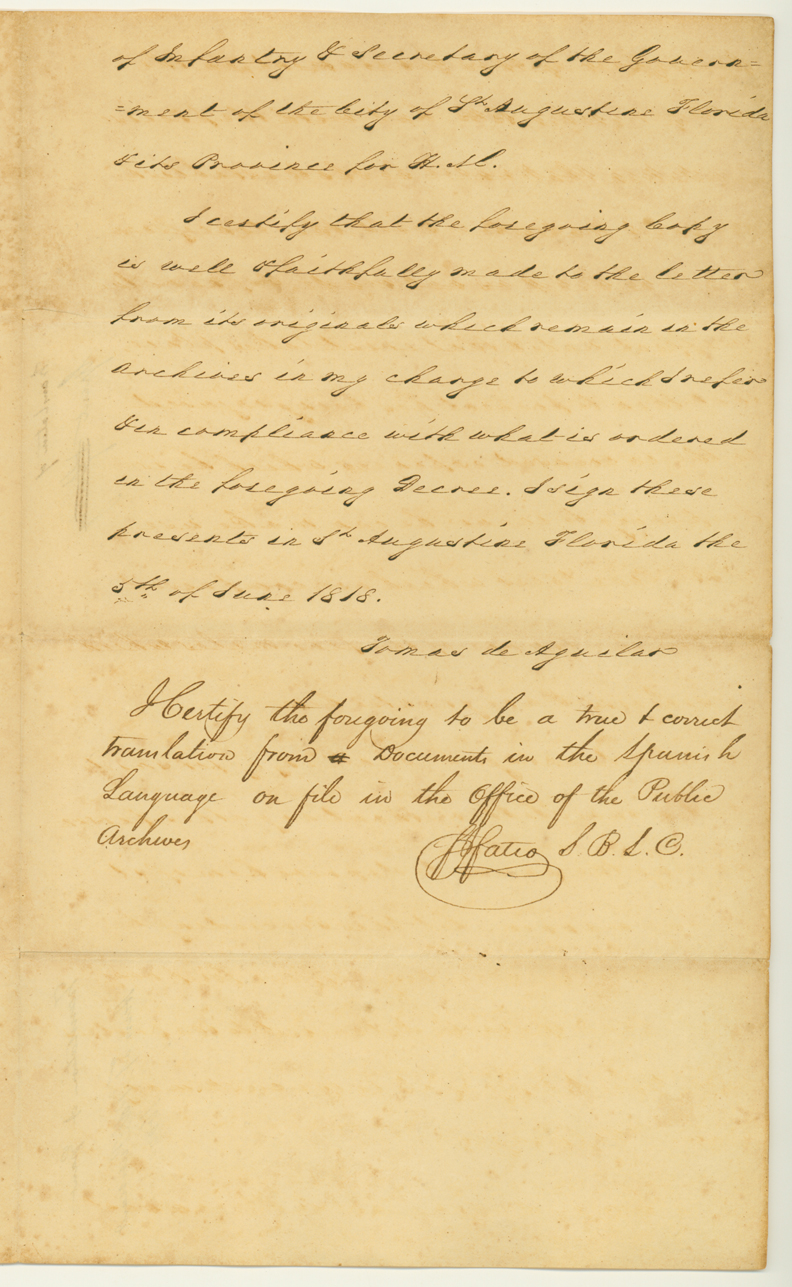 of Infantry & Secretary of the Govern=
=ment of the City of St. Augustine Florida
& its Province for H. M.
I certify that the foregoing Copy
is well & faithfully made to the letter
from its originals which remain in the
archives in my charge to which I refer
& in compliance with what is ordered
in the foregoing Decree. I sign these
presents in St. Augustine Florida the
5th of June 1818.
Tomas de Aguilar
I Certify the foregoing to be a true & correct
translation from Documents in the Spanish
Language on file in the Office of the Public
Archives
Fatio S. B. L. C.